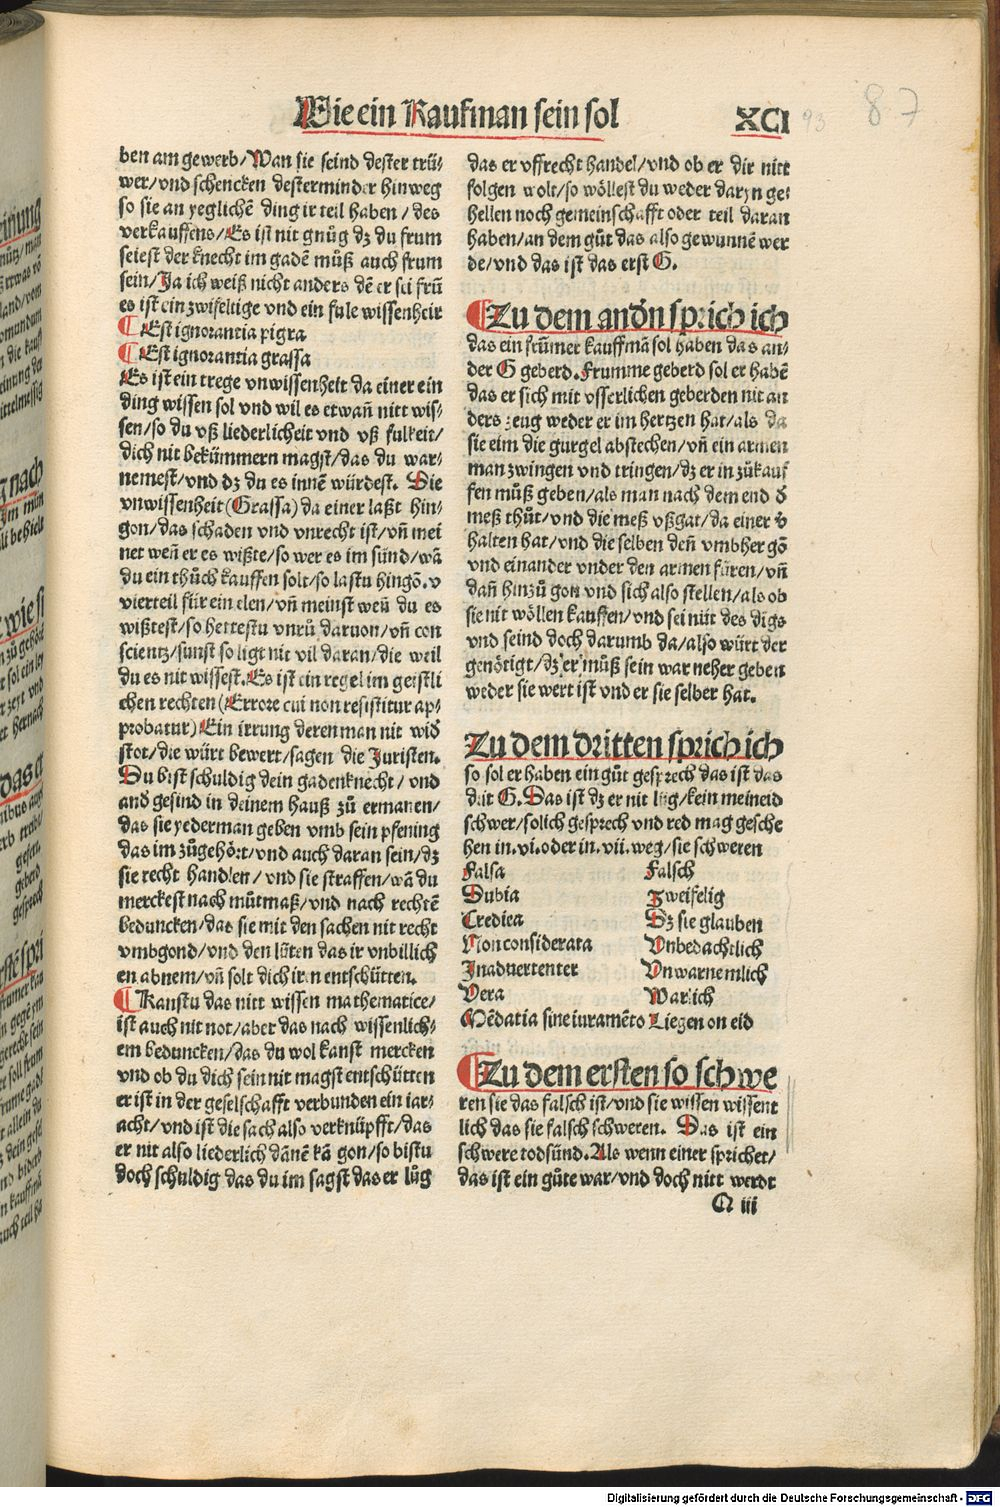 Wie ein Kaufman sein sol
XCI
93
87
ben am gewerb/Wan sie seind dester trü⸗
wer/vnd schencken desterminder hinweg
so sie an yeglichē ding ir teil haben / des
verkauffens/Es ist nit gnůg dz du frum
seiest der knecht im gadē můß auch frum
sein/Ja ich weiß nicht anders dē er sei frū
es ist ein zwifeltige vnd ein fule wissenheit
¶ Est ignorantia pigra
¶ Est ignorantia grassa
Es ist ein trege vnwissenheit da einer ein
ding wissen sol vnd wil es etwañ nitt wis⸗
sen/so du vß liederlicheit vnd vß fulkeit/
dich nit bekümmern magst/das du war⸗
nemest/vnd dz du es innē würdest. Die
vnwissenheit(Grassa)da einer laßt hin⸗
gon/das schaden vnd vnrecht ist/vñ mei
net weñ er es wißte/so wer es im sünd/wā
du ein thůch kauffen solt/so lastu hingō.v
vierteil für ein elen/vñ meinst weñ du es
wißtest/so hettestu vnrů daruon/vñ con
scientz/sunst so ligt nit vil daran/die weil
du es nit wissest.Es ist ein regel im geistli
chen rechten(Errore cui non resistitur ap⸗
probatur)Ein irrung deren man nit wiď
stot/die würt bewert/sagen die Juristen.
Du bist schuldig dein gadenknecht/ vnd
anď gesind in deinem hauß zů ermanen/
das sie yederman geben vmb sein pfening
das im zůgehört/vnd auch daran sein/dz
sie recht handlen/vnd sie straffen/wā du
merckest nach můtmaß/vnd nach rechtē
beduncken/das sie mit den sachen nit recht
vmbgond/vnd den lüten das ir vnbillich
en abnem/vñ solt dich iren entschütten.
¶ Kanstu das nitt wissen mathematice/
ist auch nit not/aber das nach wissenlich⸗
em beduncken/das du wol kanst mercken
vnd ob du dich sein nit magst entschütten
er ist in der geselschafft verbunden ein iar⸗
acht/vnd ist die sach also verknüpfft/das
er nit also liederlich dānē kā gon/so bistu
doch schuldig das du im sagst das er lůg
das er vffrecht handel/vnd ob er dir nitt
folgen wolt/so wöllest du weder daryn ge⸗
hellen noch gemeinschafft oder teil daran
haben/an dem gůt das also gewunnē wer
de/vnd das ist das erst G.
¶ Zu dem andň sprich ich
das ein frūmer kauffmā sol haben das an⸗
der G geberd.Frumme geberd sol er habē
das er sich mit vsserlichen geberden nit an
ders zeug weder er im hertzen hat/als da
sie eim die gurgel abstechen/vñ ein armen
man zwingen vnd tringen/dz er in zůkauf
fen můß geben/als man nach dem end ď
meß thůt/vnd die meß vßgat/da einer v̓
halten hat/vnd die selben deñ vmbher gō
vnd einander vnder den armen füren/vñ
dañ hinzů gon vnd sich also stellen/als ob
sie nit wöllen kauffen/vnd sei nüt des digs
vnd seind doch darumb da/also würt der
genötigt/dz er můß sein war neher geben
weder sie wert ist vnd er sie selber hat.
Zu dem dritten sprich ich
so sol er haben ein gůt gesprech das ist das
drit G.Das ist dz er nit lüg/kein meineid
schwer/solich gesprech vnd red mag gesche
hen in.vi.oder in.vii.weg/sie schweren
Falsa Falsch
Dubia Zweifelig
Credita Dz sie glauben
Non considerata Vnbedachtlich
Inaduertenter Vnwarnemlich
Vera Warlich
Mēdatia sine iuramēto Liegen on eid
¶ Zu dem ersten so schwe
ren sie das falsch ist/vnd sie wissen wissent
lich das sie falsch schweren. Das ist ein
schwere todsünd.Als wenn einer sprichet/
das ist ein gůte war/vnd doch nitt werdt
Q iii
Digitalisierung gefördert durch die Deutsche Forschungsgemeinschaft - DFG